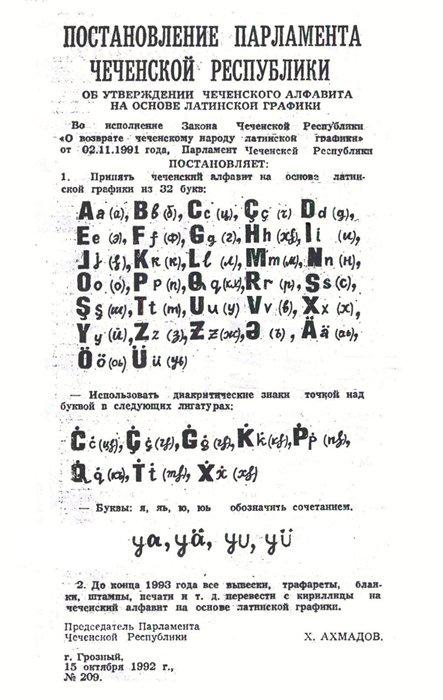 ПОСТАНОВЛЕНИЕ ПАРЛАМЕНТА
ЧЕЧЕНСКОЙ РЕСПУБЛИКИ
ОБ УТВЕРЖДЕНИИ ЧЕЧЕНСКОГО АЛФАВИТА
НА ОСНОВЕ ЛАТИНСКОЙ ГРАФИКИ
Во исполнение Закона Чеченской Республики
«О возврате чеченскому народу латинской графики»
от 02.11.1991 года, Парламент Чеченской Республики
ПОСТАНОВЛЯЕТ:
1. Принять чеченский алфавит на основе латин-
ской графики из 32 букв:
Aa (а), Bb (б), Cc (ц), Çç (ч) Dd (д),
Ee (э) Ff (ф) Gg (г) Hh (хӏ) Ii (и),
Jj (ӏ) Kk (к) Ll (л) Mm (м), Nn (н),
Oo (о) Pp (п), Qq (кх) Rr (р), Ss (с)
Şş (ш), Tt (т) Uu (у) Vv (в), Xx (х)
Yy (й) Zz (з) Ƶƶ (ж), Ə (ъ), Ää (аь),
Öö (оь) Üü (уь)
— Использовать диакритические знаки точкой над
буквой в следующих лигатурах:
Ċċ (цӏ), Ç̇ç̇ (чӏ), Ġġ (гӏ), K̇k̇ (кӏ), Ṗṗ (пӏ),
Q̇q̇ (къ) Ṫṫ (тӏ), Ẋẋ (хӏ)
— Буквы: я, яь, ю, юь обозначить сочетанием.
ya, yä, yu, yü
2. До конца 1993 года все вывески, трафареты, блан-
ки, штампы, печати и т. д. перевести с кириллицы на
чеченский алфавит на основе латинской графики.
Председатель Парламента
Чеченской Республики Х. АХМАДОВ.
г. Грозный,
15 октября 1992 г.,
№ 209.